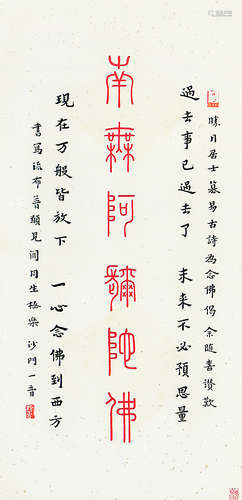 勝月居士纂易古詩為念佛偈余隨喜讚歎
過去事已過去了 未來不必預思量
南無阿彌陀佛
現在万般皆放下 一心念佛到西方
書寫流布普願見聞同生極樂 沙門一音